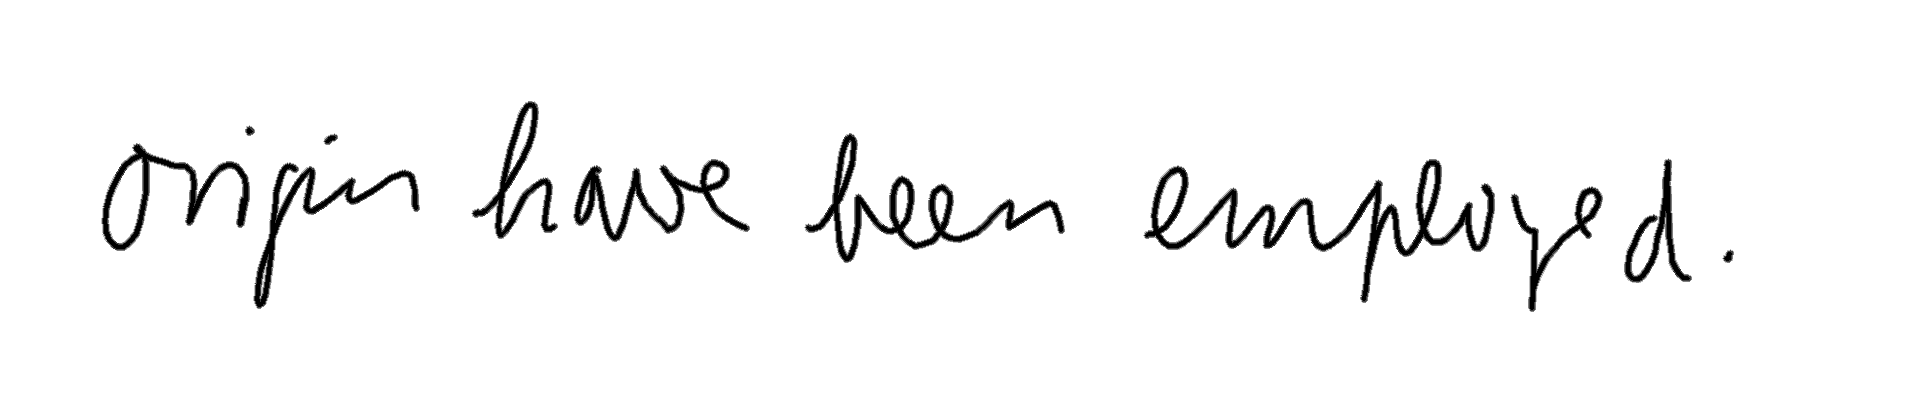 origin have been employed.